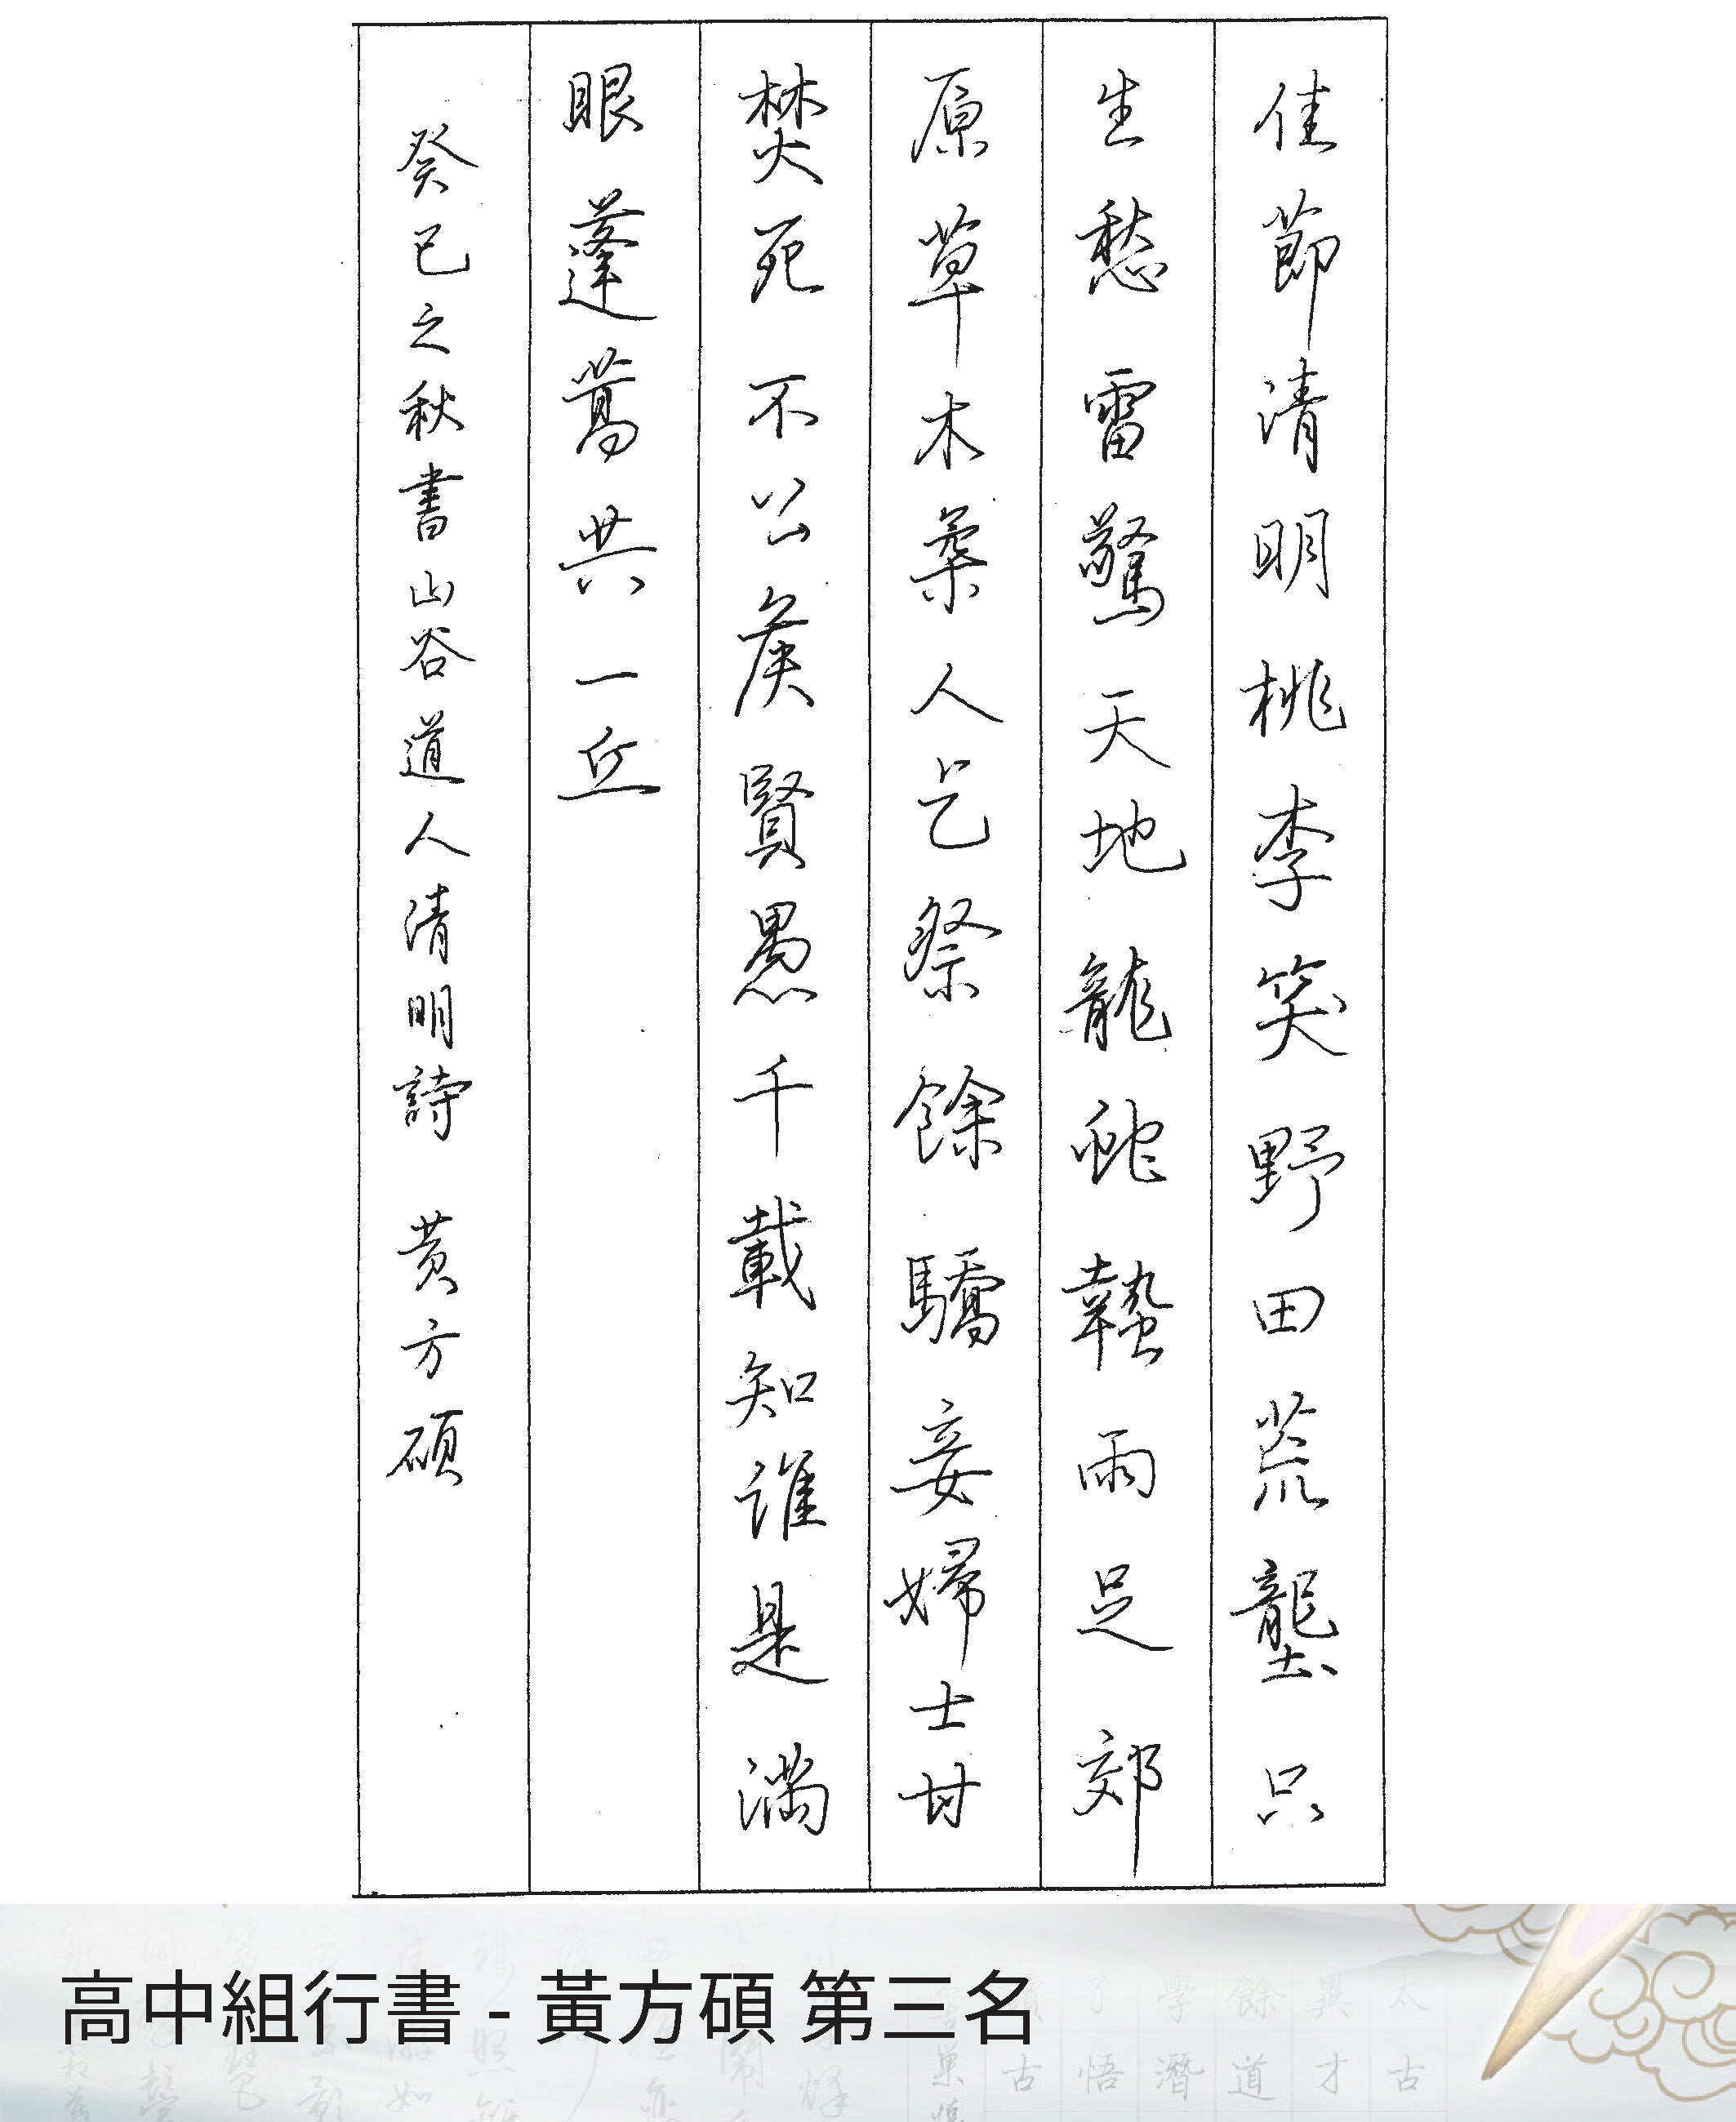 佳節清明桃李笑野田荒壟只
生愁雷驚天地龍蛇蟄雨足郊
原草木柔人乞祭餘驕妾婦士甘
焚死不公侯賢愚千載知誰是滿
眼蓬蒿共一丘
癸巳之秋書山谷道人清明詩 黃方碩
高中組行書 - 黃方碩 第三名